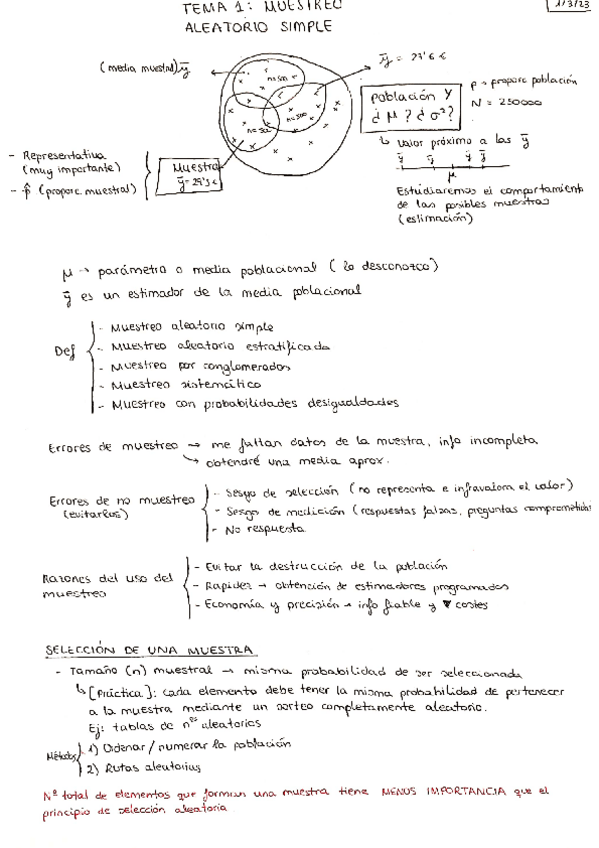 TEMA 1: MUESTREO
ALEATORIO SIMPLE
1/3/23
(media muestral) ȳ
ȳ = 29'6 €
n=500
n=500
n=500
Población Y
¿μ? ¿σ²?
p → proporc población
N = 250000
↳ valor próximo a las ȳ
ȳ ȳ ȳ ȳ
μ
- Representativa
(muy importante)
- p̂ (proporc. muestral)
Muestra
ȳ = 29'5 €
Estudiaremos el comportamiento
de las posibles muestras
(estimación)
μ → parámetro o media poblacional (lo desconozco)
ȳ es un estimador de la media poblacional
Def
- Muestreo aleatorio simple
- Muestreo aleatorio estratificado
- Muestreo por conglomerados
- Muestreo sistemático
- Muestreo con probabilidades desigualdades
Errores de muestreo → me faltan datos de la muestra, info incompleta
↳ obtendré una media aprox.
Errores de no muestreo
(evitarlos)
- Sesgo de selección (no representa e infravalora el valor)
- Sesgo de medición (respuestas falsas, preguntas comprometidas
- No respuesta
Razones del uso del
muestreo
- Evitar la destrucción de la población
- Rapidez → obtención de estimadores programados
- Economía y precisión → info fiable y ▼ costes
SELECCIÓN DE UNA MUESTRA
- Tamaño (n) muestral → misma probabilidad de ser seleccionada
↳ [Práctica]: cada elemento debe tener la misma probabilidad de pertenecer
a la muestra mediante un sorteo completamente aleatorio.
Ej: tablas de nºs aleatorios
Métodos
1) Ordenar / numerar la población
2) Rutas aleatorias
Nº total de elementos que forman una muestra tiene MENOS IMPORTANCIA que el
principio de selección aleatoria